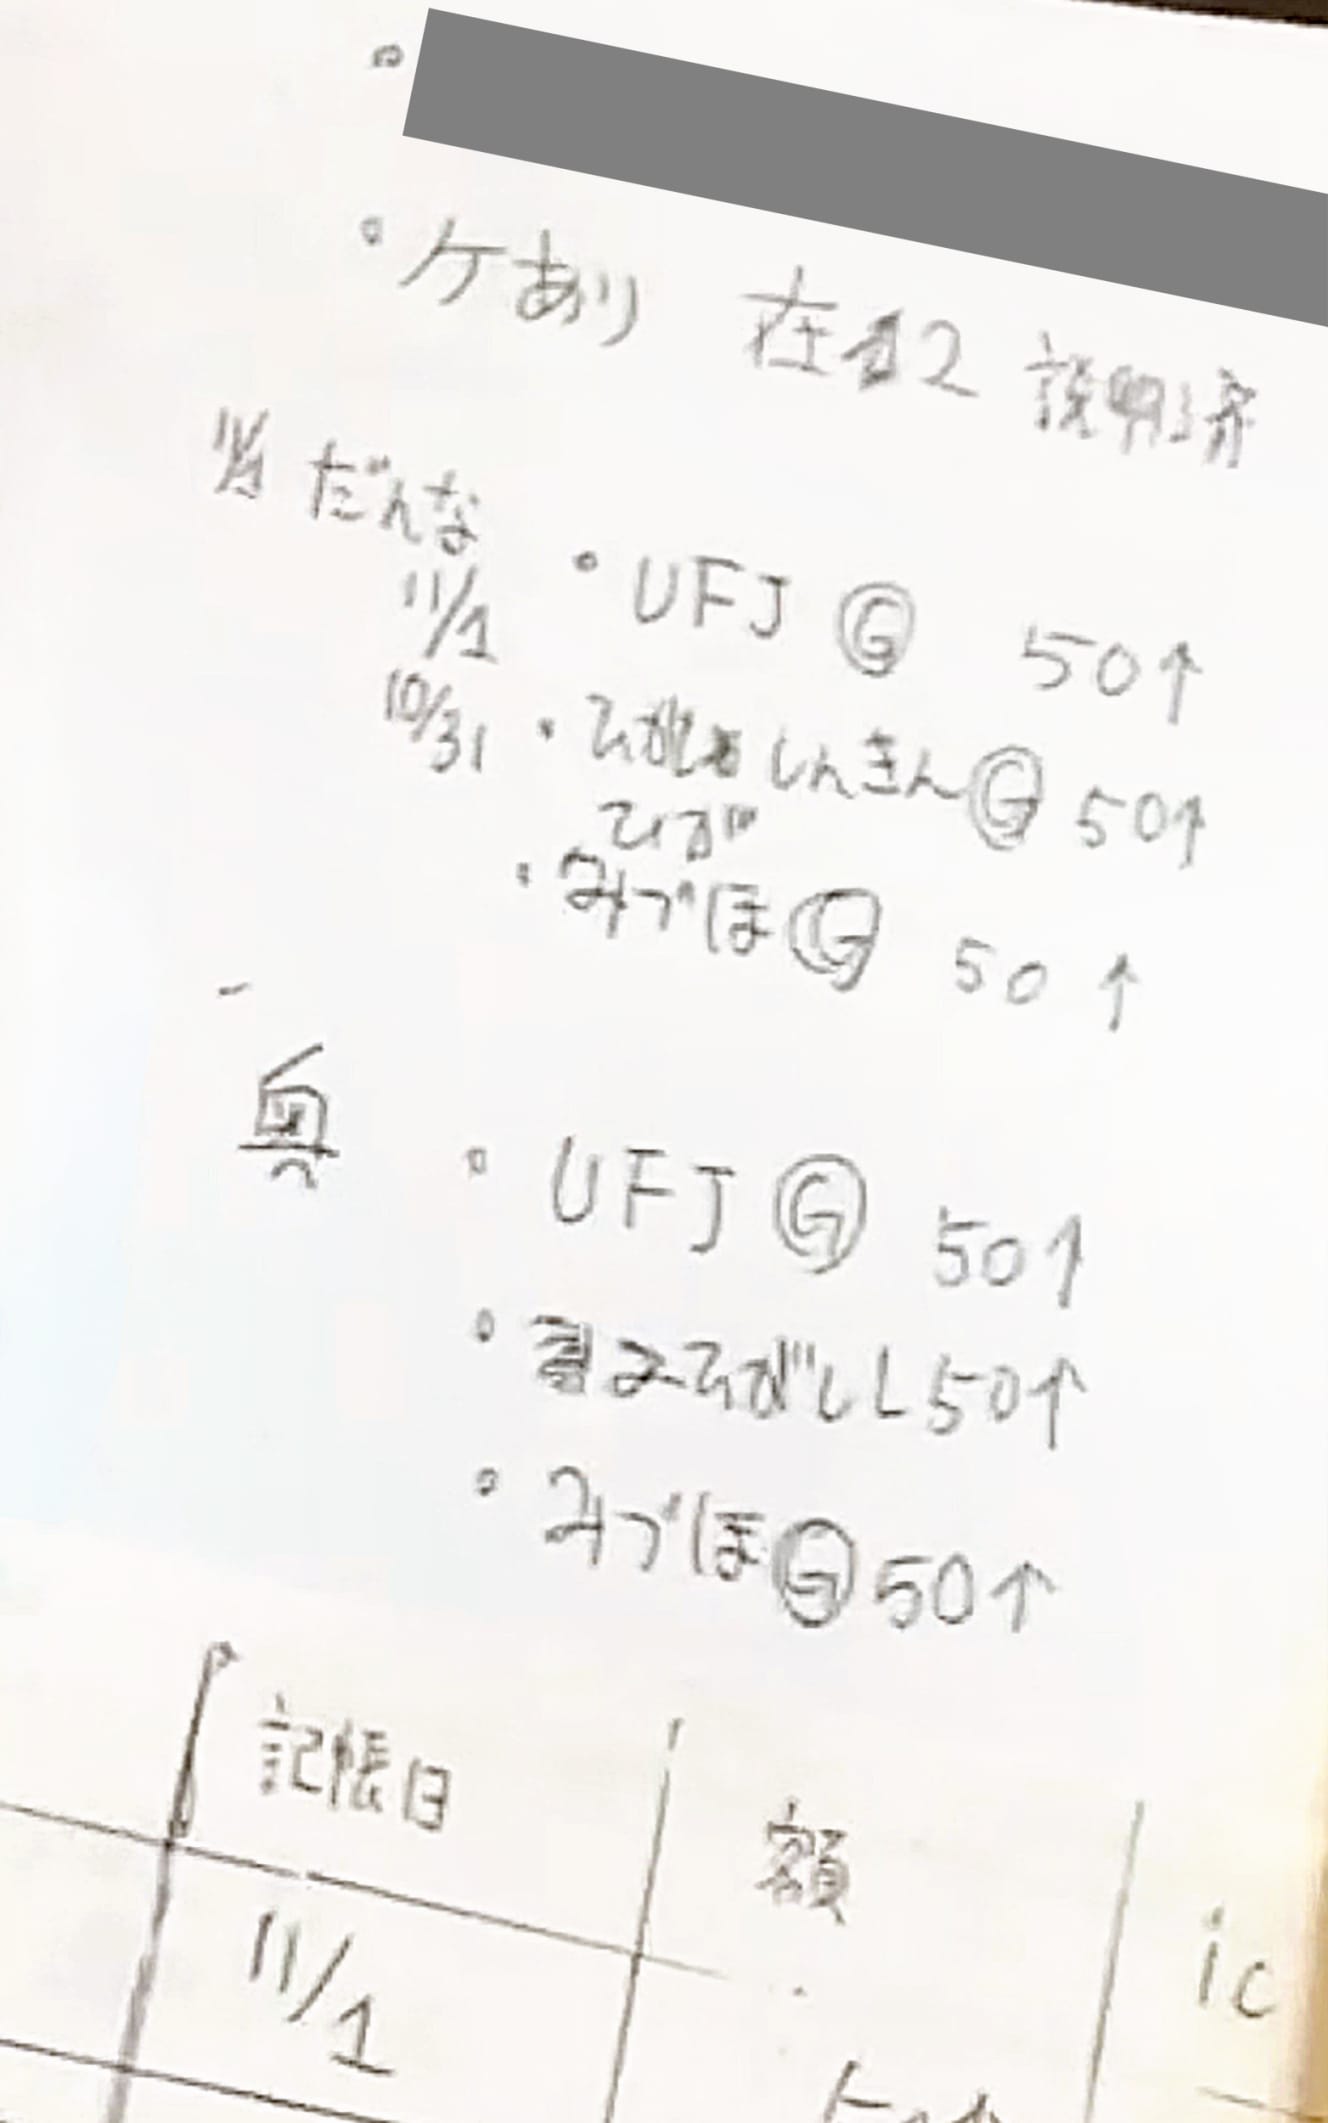 ・ケあり 在宅2 説明済
だんな
11/1 ・UFJ Ⓖ 50↑
10/31 ・ひがし しんきんⒼ 50↑
ひが
・みづほⒼ 50↑
・UFJ Ⓖ 50↑
ひがしし50↑
・みづほⒼ50↑
記帳日 額 ic
11/1